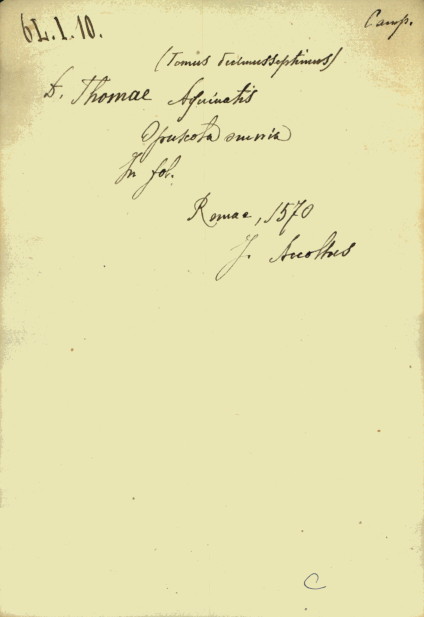 6L.1.10.
Camp.
(Tomus decimusseptimus)
D. Thomae Aquinatis
Opuscola omnia
In fol.
Romae, 1570
J. Accoltus
C